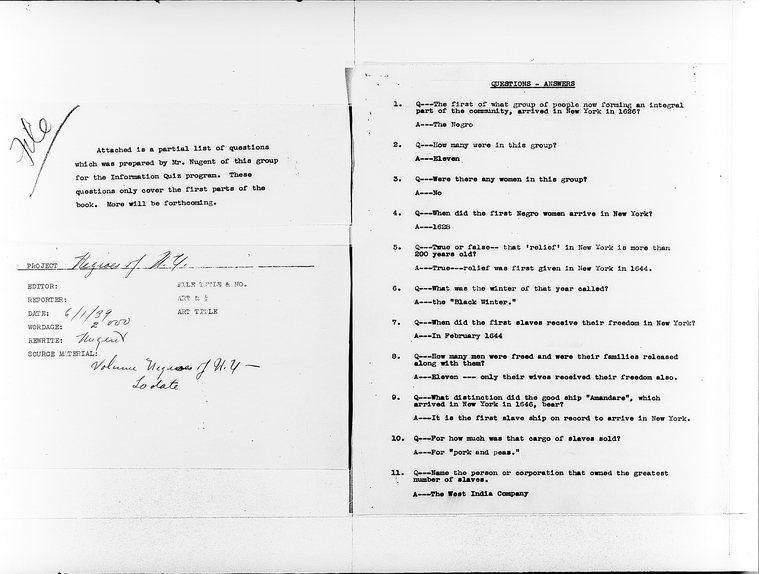 File
Attached is a partial list of questions
which was prepared by Mr. Nugent of this group
for the Information Quiz program. These
questions only cover the first parts of the
book. More will be forthcoming.
PROJECT Negroes of N.Y.
EDITOR: FILE TITLE & NO.
REPORTER: ART & #
DATE: 6/1/39 ART TITLE
WORDAGE: 2000
REWRITE: Nugent
SOURCE MATERIAL:
Volume Negroes of N.Y —
to date
QUESTIONS - ANSWERS
1. Q---The first of what group of people now forming an integral
part of the community, arrived in New York in 1626?
A---The Negro
2. Q---How many were in this group?
A---Eleven
3. Q---Were there any women in this group?
A---No
4. Q---When did the first Negro women arrive in New York?
A---1628
5. Q---True or false-- that 'relief' in New York is more than
200 years old?
A---True---relief was first given in New York in 1644.
6. Q---What was the winter of that year called?
A---the "Black Winter."
7. Q---When did the first slaves receive their freedom in New York?
A---In February 1644
8. Q---How many men were freed and were their families released
along with them?
A---Eleven --- only their wives received their freedom also.
9. Q---What distinction did the good ship "Amandare", which
arrived in New York in 1646, bear?
A---It is the first slave ship on record to arrive in New York.
10. Q---For how much was that cargo of slaves sold?
A---For "pork and peas."
11. Q---Name the person or corporation that owned the greatest
number of slaves.
A---The West India Company